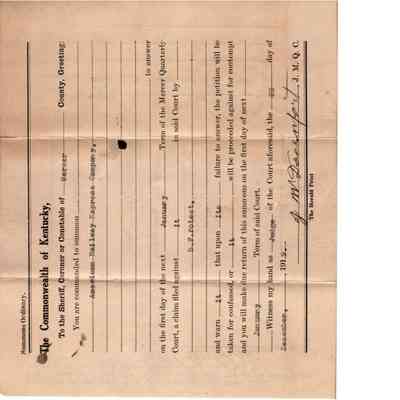 Summons Ordinary.
The Commonwealth of Kentucky,
To the Sheriff, Coroner or Constable of Mercer County, Greeting:
You are commanded to summon
American Railway Express Company,
to answer
on the first day of the next January Term of the Mercer Quarterly
Court, a claim filed against it in said Court by
and warn it that upon its failure to answer, the petition will be
taken for confessed, or it will be proceeded against for contempt
and you will make due return of this summons on the first day of next
January Term of said Court.
Witness my hand as Judge of the Court aforesaid, the day of
December, 191 J. M. Q. C.
The Herald Print